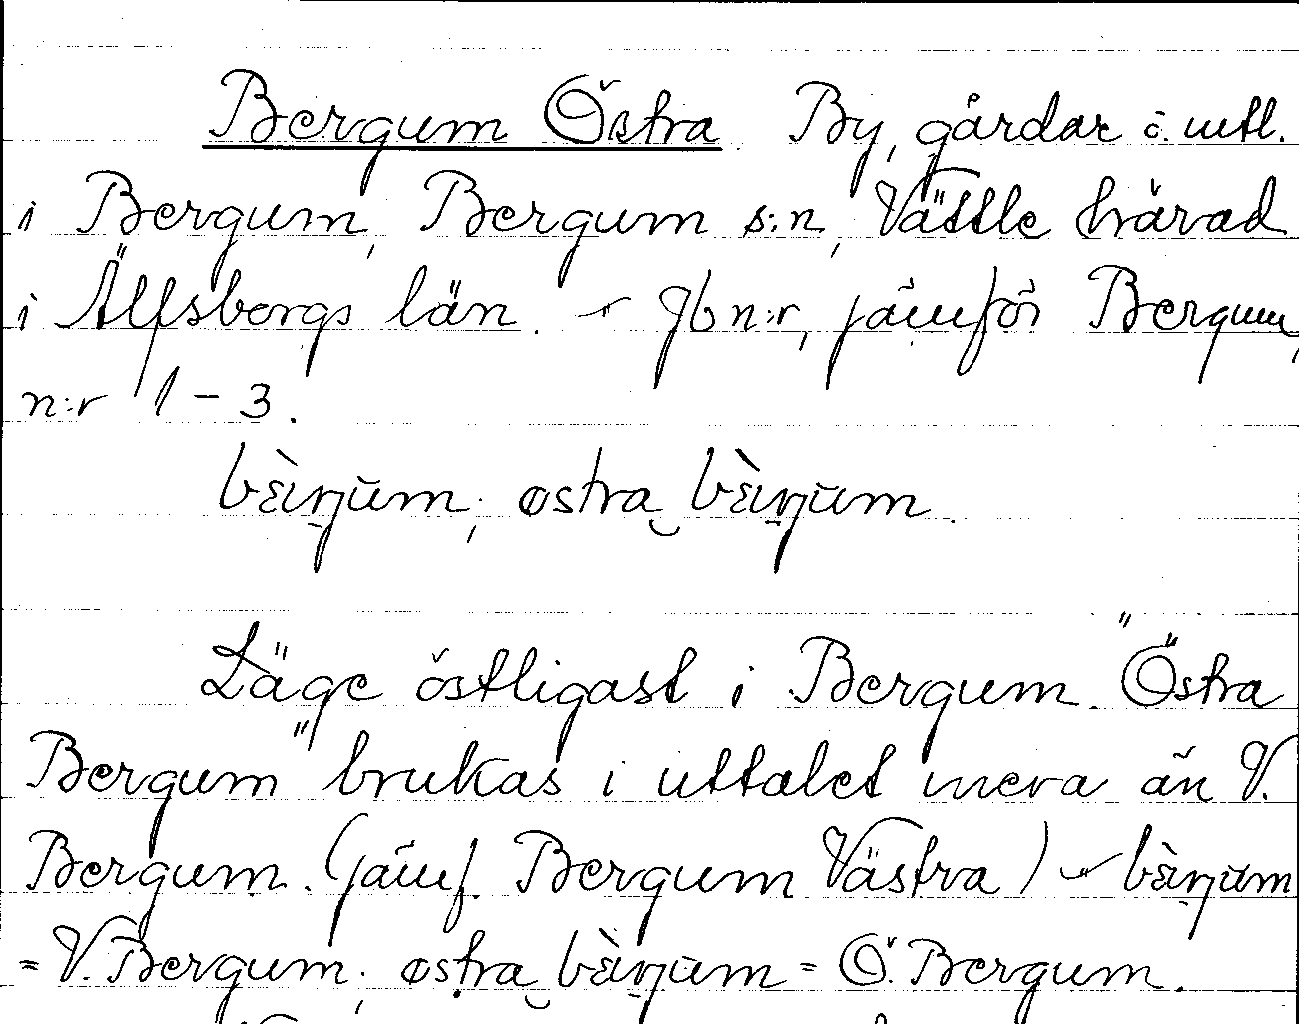 Bergum Östra By, gårdar o. utl.
i Bergum, Bergum s:n, Vättle härad
i Älfsborgs län. - Jb n:r, jämför Bergum,
n:r 1 - 3.
østra
Läge östligast i Bergum. "Östra
Bergum" brukas i uttalet mera än V.
Bergum. (jämf. Bergum Västra) -
= V. Bergum; østra = Ö. Bergum.